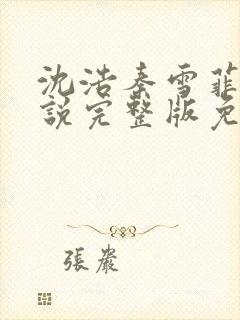 沈浩秦雪菲
說完整版免
張嚴